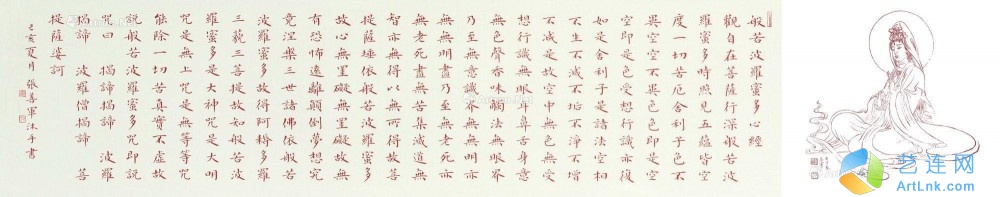 般若波羅蜜多心經
觀自在菩薩行深般若波
羅蜜多時照見五蘊皆空
度一切苦厄舍利子色不
異空空不異色色即是空
空即是色受想行識亦復
如是舍利子是諸法空相
不生不滅不垢不淨不增
不減是故空中無色無受
想行識無眼耳鼻舌身意
無色聲香味觸法無眼界
乃至無意識界無無明亦
無無明盡乃至無老死亦
無老死盡無苦集滅道無
智亦無得以無所得故菩
提薩埵依般若波羅蜜多
故心無罣礙無罣礙故無
有恐怖遠離顛倒夢想究
竟涅槃三世諸佛依般若
波羅蜜多故得阿耨多羅
三藐三菩提故知般若波
羅蜜多是大神咒是大明
咒是無上咒是無等等咒
能除一切苦真實不虛故
說般若波羅蜜多咒即說
咒曰 揭諦揭諦 波羅
揭諦 波羅僧揭諦 菩
提薩婆訶
己亥夏月 張善軍沐手書
艺连网
ArtLnk.com